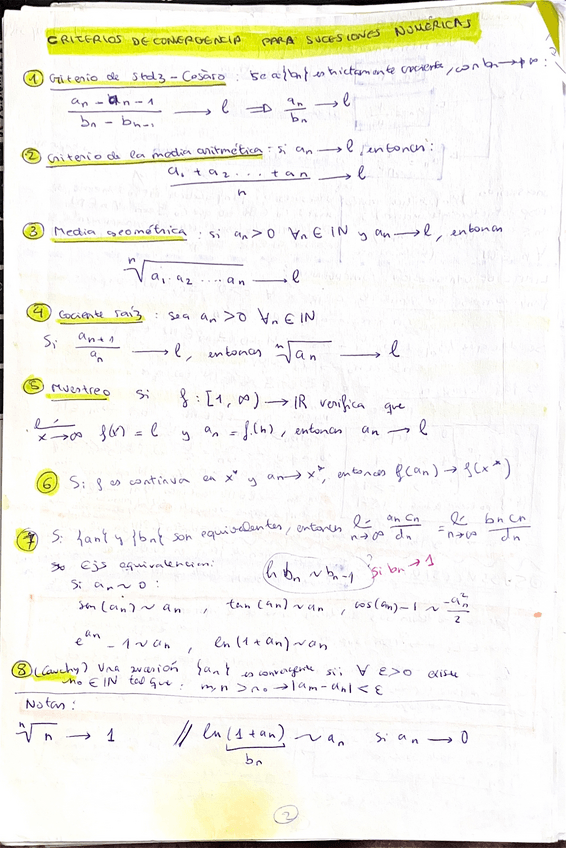 CRITERIOS DE CONVERGENCIA PARA SUCESIONES NUMÉRICAS
① Criterio de Stolz-Cesàro : Sea {bn} estrictamente creciente, con bn → +∞ :
(an - an-1)/(bn - bn-1) → l ⇒ an/bn → l
② Criterio de la media aritmética : si an → l, entonces :
(a1 + a2 ... + an)/n → l
③ Media geométrica : si an > 0 ∀n ∈ IN y an → l, entonces
ⁿ√(a1 · a2 ... an) → l
④ Cociente raíz : sea an > 0 ∀n ∈ IN
Si an+1/an → l, entonces ⁿ√an → l
⑤ Muestreo Si f : [1, ∞) → IR verifica que
lím x→∞ f(x) = l y an = f(n), entonces an → l
⑥ Si f es continua en x* y an → x*, entonces f(an) → f(x*)
⑦ Si {an} y {bn} son equivalentes, entonces lím n→∞ an cn/dn = lím n→∞ bn cn/dn
Ejs equivalencia:
ln bn ~ bn-1 si bn → 1
Si an ~ 0 :
sen(an) ~ an , tan(an) ~ an , cos(an)-1 ~ -an²/2
e^an - 1 ~ an , ln(1+an) ~ an
⑧ (Cauchy) Una sucesión {an} es convergente sii ∀ ε>0 existe
no ∈ IN tal que : m,n > no → |am - an| < ε
Notas :
ⁿ√n → 1 // ln(1+an) ~ an si an → 0
bn
2